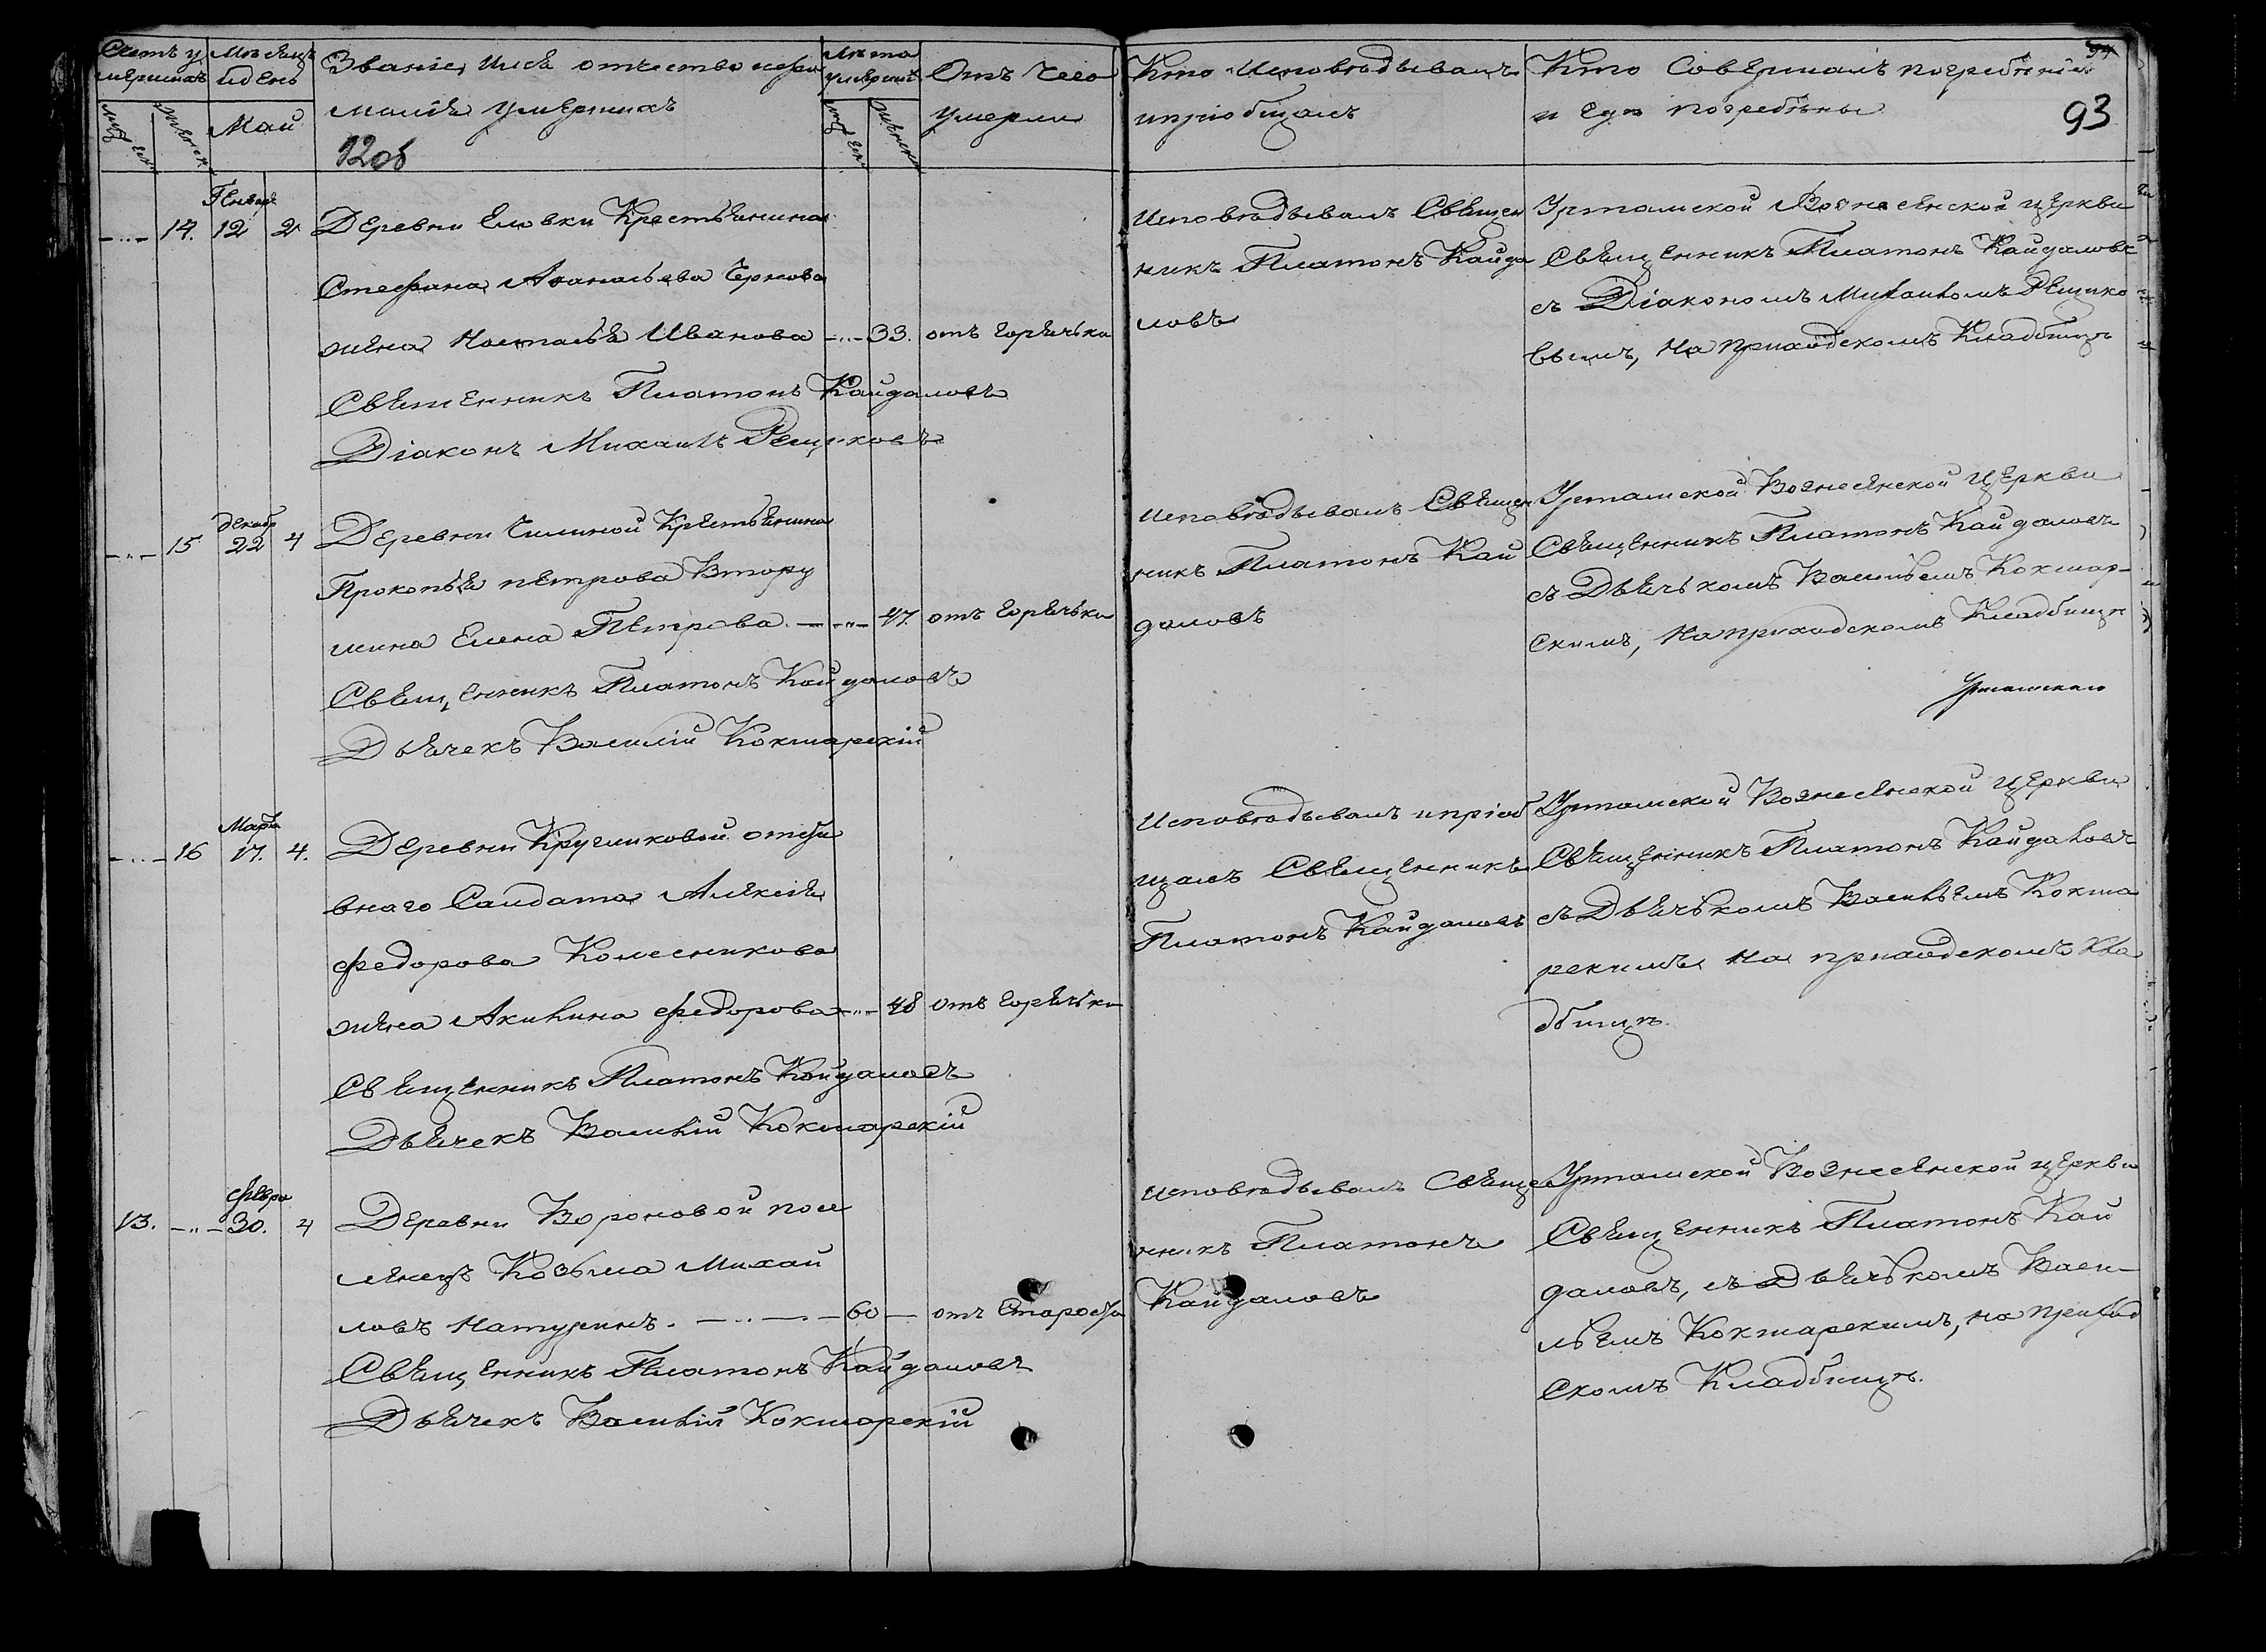 Счетъ у
мершихъ
Мѣсяцъ
и день
Званіе, имя отчество и фа
милія умершихъ
Лѣта
умершихъ
Отъ чего
умерли
Май
120б
Кто исповѣдывалъ
и пріобщалъ
Кто совершалъ погребѣніе
и гдѣ погребѣны
94
93
Генваря
14. 12 2 Деревни Еловки Крестьянина
Стефана Аѳанасьева Чернова
жена Настасья Иванова 33. отъ горячьки
Священникъ Платонъ Кайдаловъ
Діаконъ Михаилъ Рещиковъ
Исповѣдывалъ Священ
никъ Платонъ Кайда
ловъ
Уртамской Вознесенской церкви
Священникъ Платонъ Кайдаловъ
съ Діакономъ Михаиломъ Рещико
вымъ, на приходскомъ Кладбищѣ
декабр
15 22 4 Деревни Чилиной Крестьянина
Прокопья Петрова Втору
шина Елена Петрова. 47. отъ горячьки
Священникъ Платонъ Кайдаловъ
Дьячекъ Василій Кокшарскій
Исповѣдывалъ Священ
никъ Платонъ Кай
даловъ
Уртамской Вознесенской церкви
Священникъ Платонъ Кайдаловъ
съ Дьячькомъ Васильемъ Кокшар-
скимъ, на приходскомъ Кладбищѣ
Уртамскаго
Марта
16 17. 4. Деревни Кругликовой отста
внаго Салдата Алексѣя
Федорова Колесникова
жена Акилина Федорова 48 отъ горячьки
Священникъ Платонъ Кайдаловъ
Дьячекъ Василій Кокшарскій
Исповѣдывалъ и пріоб
щалъ Священникъ
Платонъ Кайдаловъ
Уртамской Вознесенской церкви
Священникъ Платонъ Кайдаловъ
съ Дьячькомъ Васильемъ Кокша
рскимъ на приходскомъ Кла
дбищѣ.
Февра
13. 30. 4 Деревни Вороновой посе
ленецъ Козьма Михай
ловъ Натусинъ. 60 отъ Старости
Священникъ Платонъ Кайдаловъ
Дьячекъ Василій Кокшарскій
Исповѣдывалъ Свяще
нникъ Платонъ
Кайдаловъ
Уртамской Вознесенской церкви
Священникъ Платонъ Кай
даловъ, съ Дьячькомъ Васи-
льемъ Кокшарскимъ, на приход
скомъ Кладбищѣ.